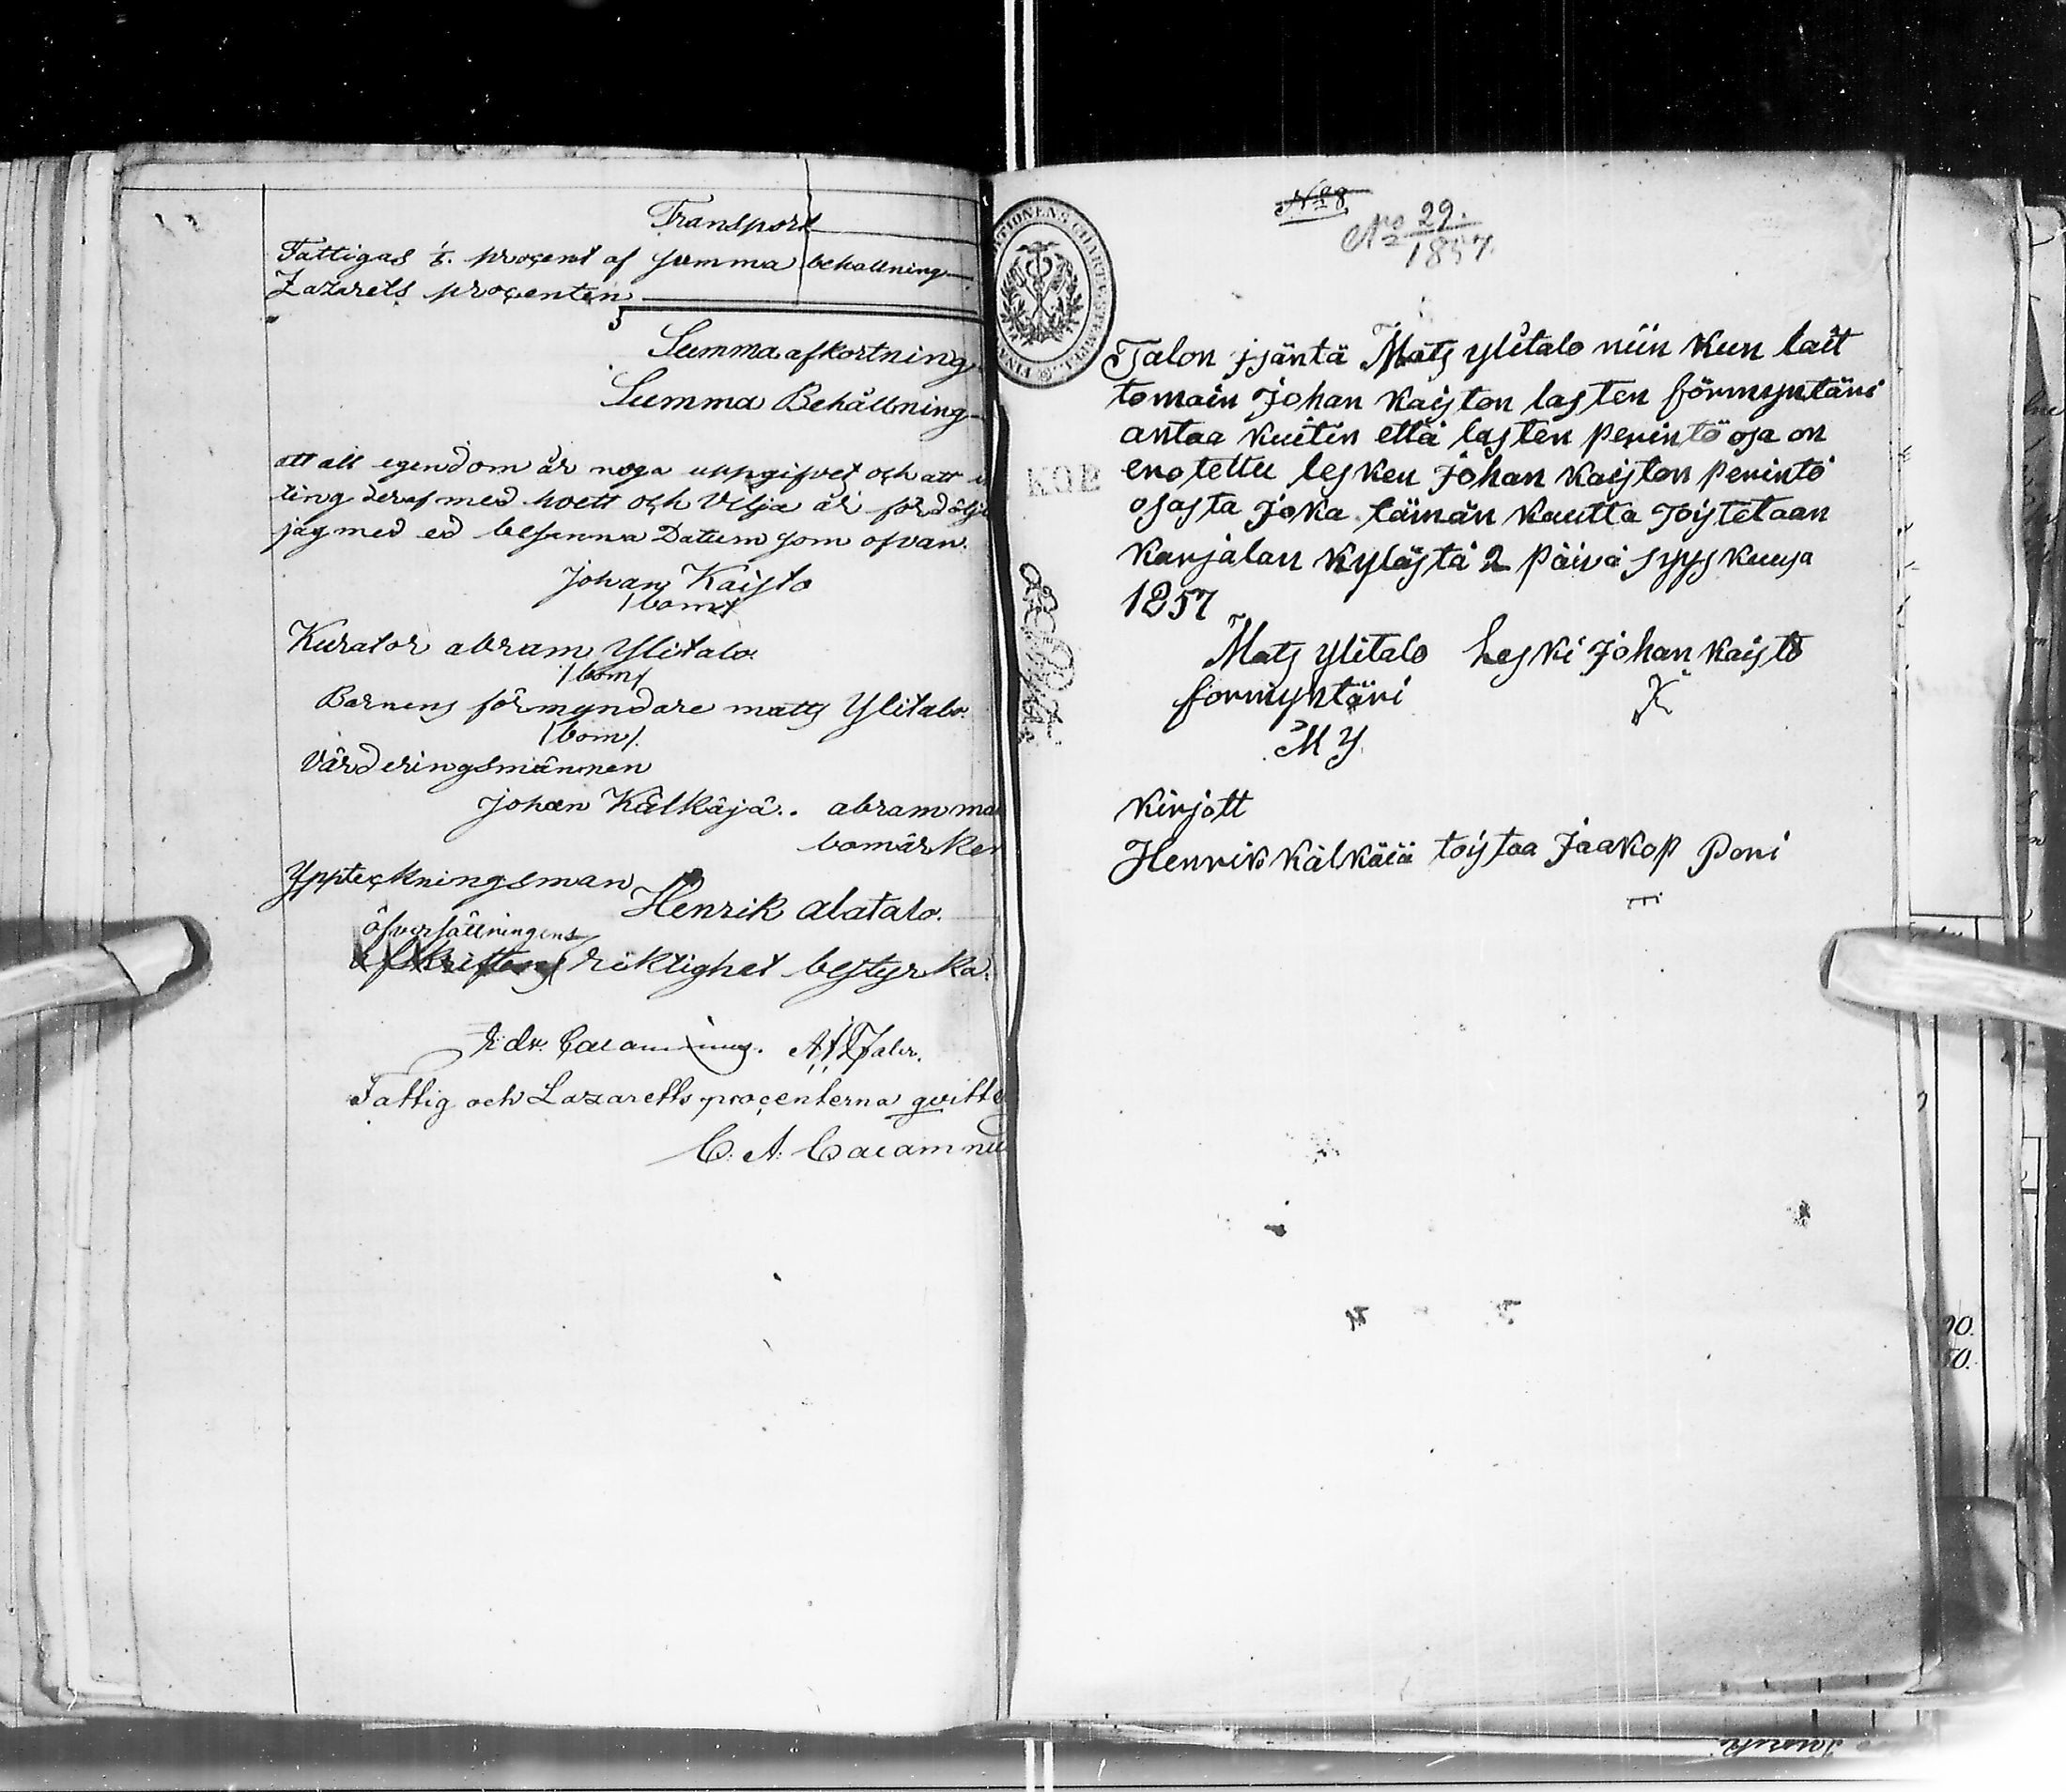 Transport
Fattigas ½. procent af summa behållning
Lazarets procenten
Summa afkortning
Summa Behållning
att all egendom är noga uppgifvet och att
ting deraf med vett och Vilja är fördölje
jag med ed besanna Datum som ofvan.
Johan Kaisto
/bom/
Kurator abram Ylitalo
/bom/
Barnens förmyndare matts Ylitalo
/bom/.
Värderingsmännen
Johan Kälkäjä.. abram ma
bomärken
Yppteckningsman
Henrik alatalo.
öfversättningens
afskriftens riktighet bestyrka:
Fattig och Lazaretts procenterna qvitte
C. A. Cacamnu
No 28
No 29.
1857.
Talon jsäntä Mats ylitalo niin kun lait
tomain Johan kaiston lasten förmyntäri
antaa kuitin että lasten perintö osa on
erotettu lesken Johan kaiston perintö
osasta joka tämän kautta Toistetaan
karjalan kylästä 2 päivä syys kuusa
1857
Mats ylitalo Leski Johan kaisto
formyntäri
M Y.
kirjott
Henrik kälkäiä toistaa Jaakop Pori
90.
50.